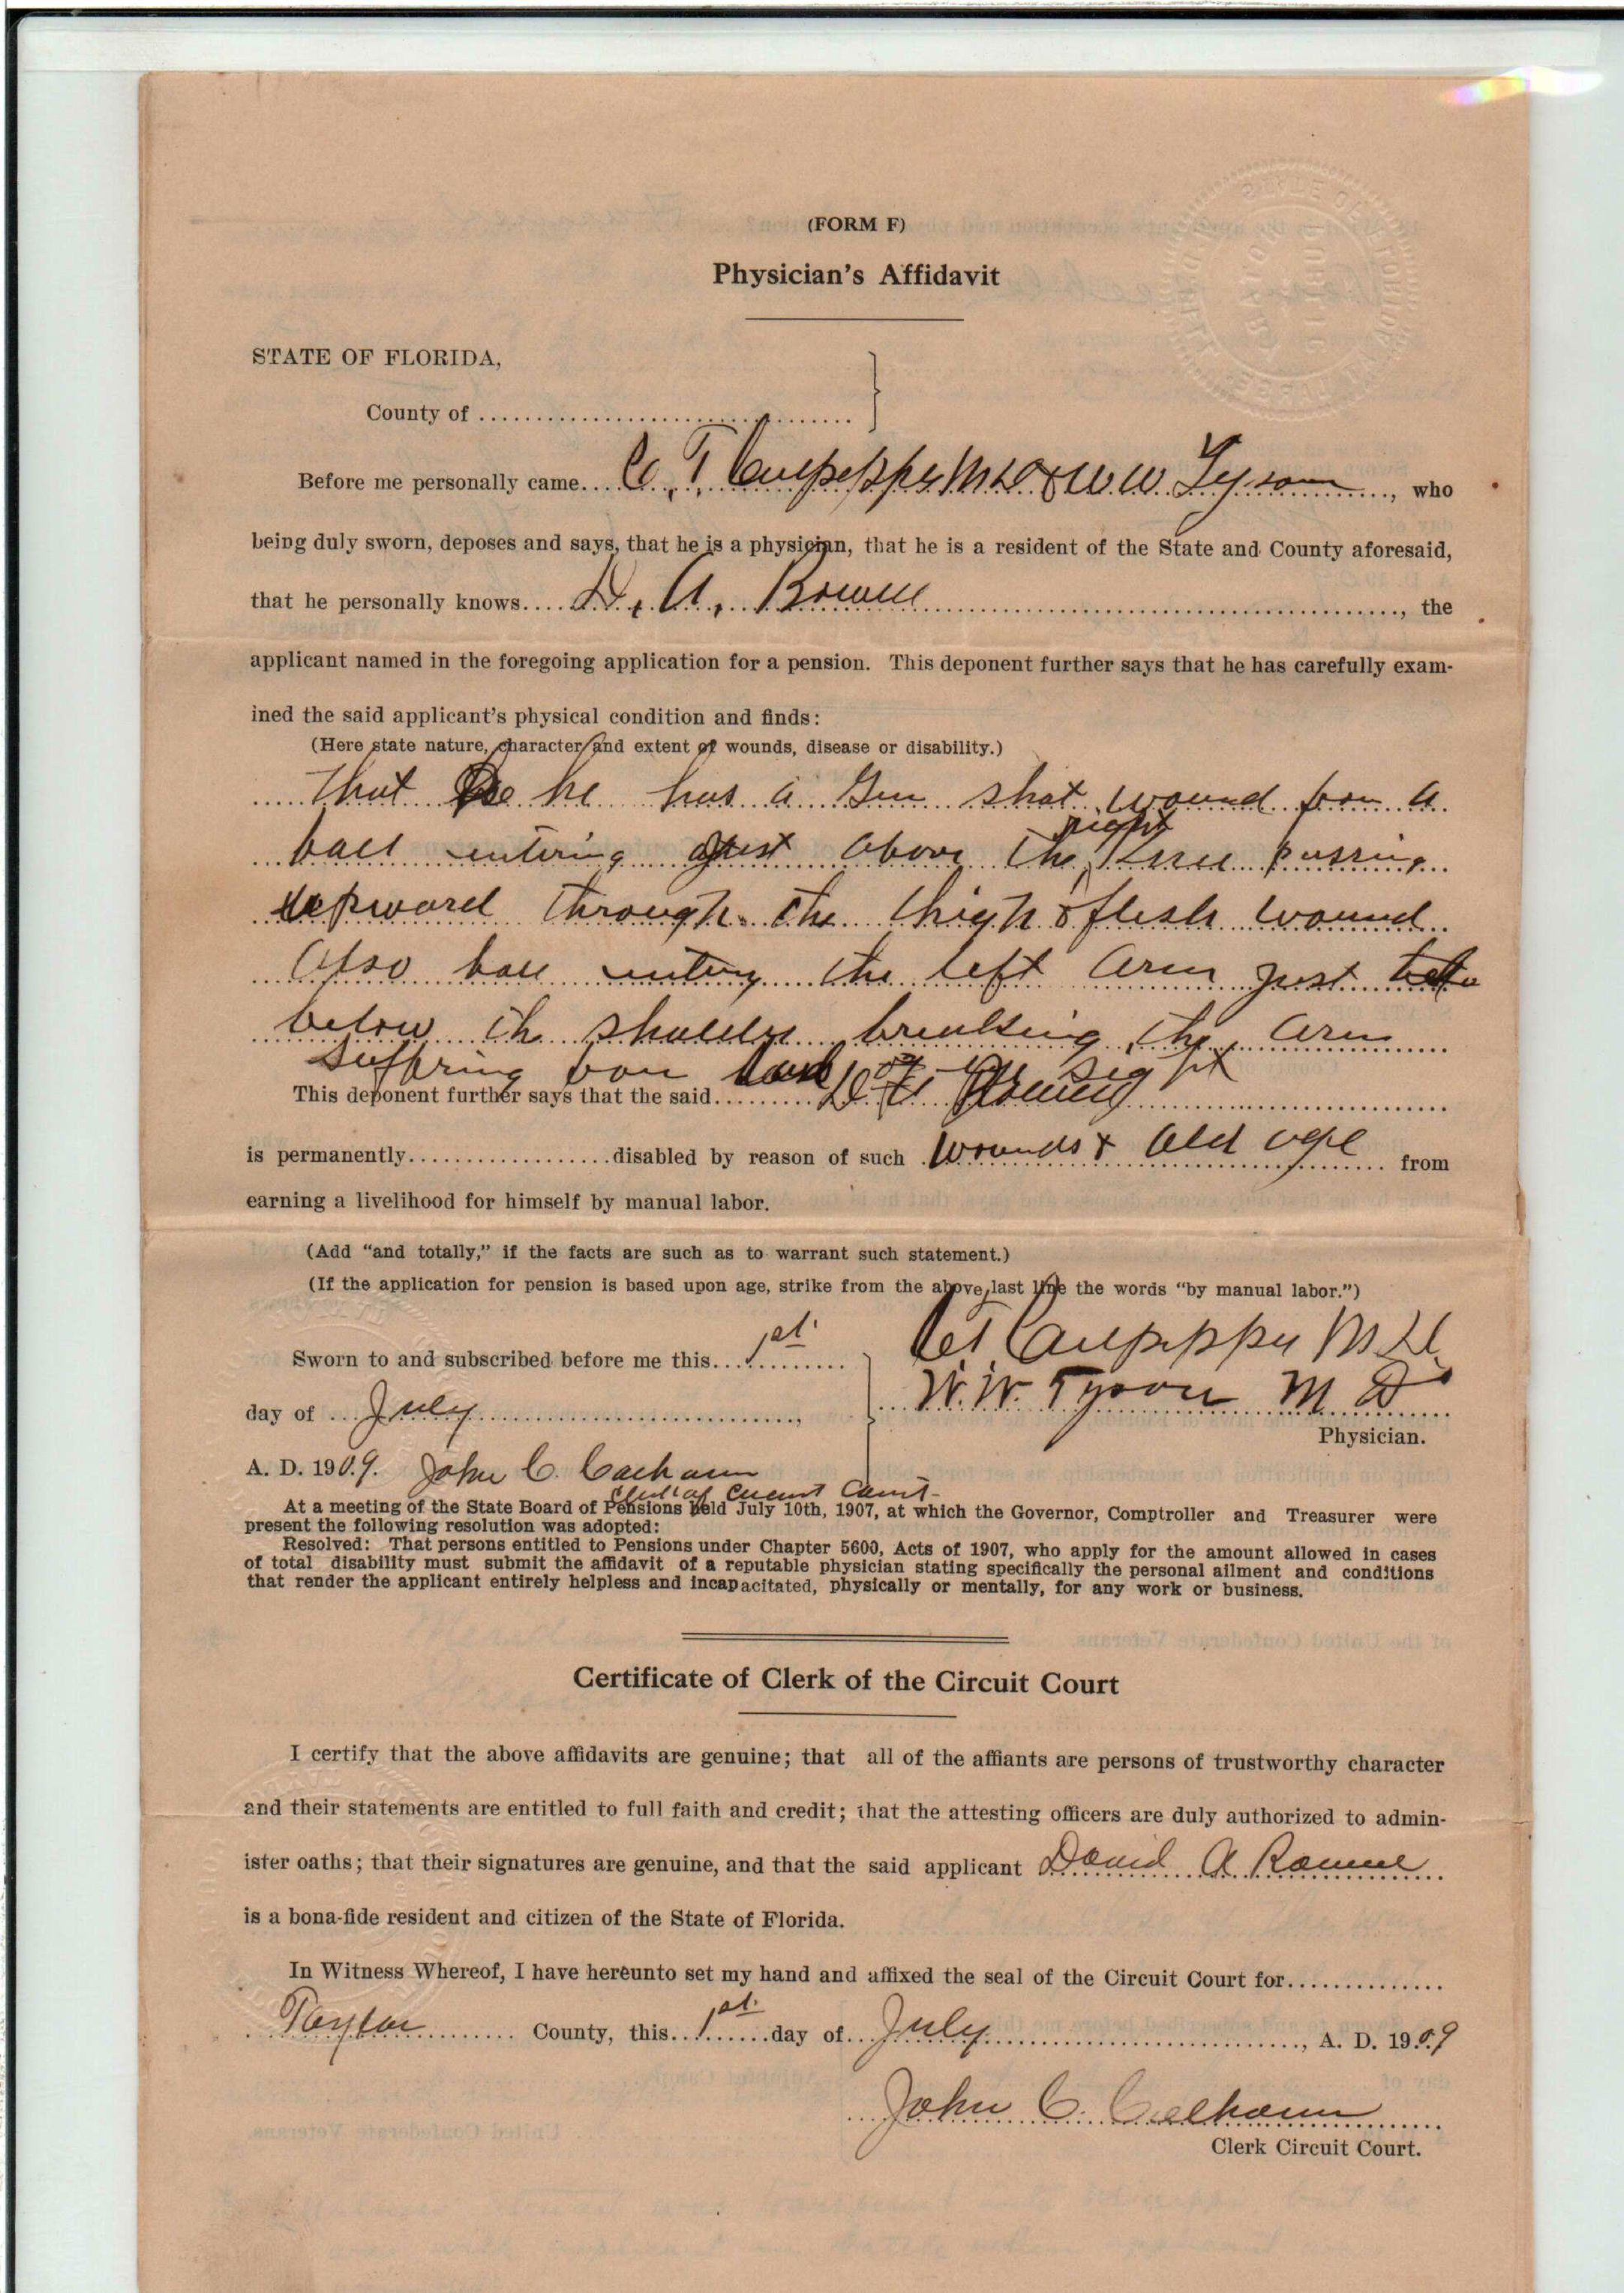 (FORM F)
Physician's Affidavit
STATE OF FLORIDA,
County of
Before me personally came C. T. Culpepper M D & W. W. Tyson, who
being duly sworn, deposes and says, that he is a physician, that he is a resident of the State and County aforesaid,
that he personally knows D. A. Rowell, the
applicant named in the foregoing application for a pension. This deponent further says that he has carefully exam-
ined the said applicant's physical condition and finds:
(Here state nature, character and extent of wounds, disease or disability.)
That he has a Gun shot wound from a
ball entering just above the right Knee passing
upward through the thigh & flesh wound
Also ball entering the left arm just
below the shoulder breaking the arm
suffering from of eye sight
This deponent further says that the said D. A. Rowell
is permanently disabled by reason of such wounds & old age from
earning a livelihood for himself by manual labor.
(Add "and totally," if the facts are such as to warrant such statement.)
(If the application for pension is based upon age, strike from the above last line the words "by manual labor.")
C T Culpepper M D
Sworn to and subscribed before me this 1st
W. W. Tyson M D
day of July,
Physician.
A. D. 1909. John C. Calhoun
Clerk of Circuit Court
At a meeting of the State Board of Pensions held July 10th, 1907, at which the Governor, Comptroller and Treasurer were
present the following resolution was adopted:
Resolved: That persons entitled to Pensions under Chapter 5600, Acts of 1907, who apply for the amount allowed in cases
of total disability must submit the affidavit of a reputable physician stating specifically the personal ailment and conditions
that render the applicant entirely helpless and incapacitated, physically or mentally, for any work or business.
Certificate of Clerk of the Circuit Court
I certify that the above affidavits are genuine; that all of the affiants are persons of trustworthy character
and their statements are entitled to full faith and credit; that the attesting officers are duly authorized to admin-
ister oaths; that their signatures are genuine, and that the said applicant David A Rowell
is a bona-fide resident and citizen of the State of Florida.
In Witness Whereof, I have hereunto set my hand and affixed the seal of the Circuit Court for
Taylor County, this 1st day of July, A. D. 1909
John C. Calhoun
Clerk Circuit Court.